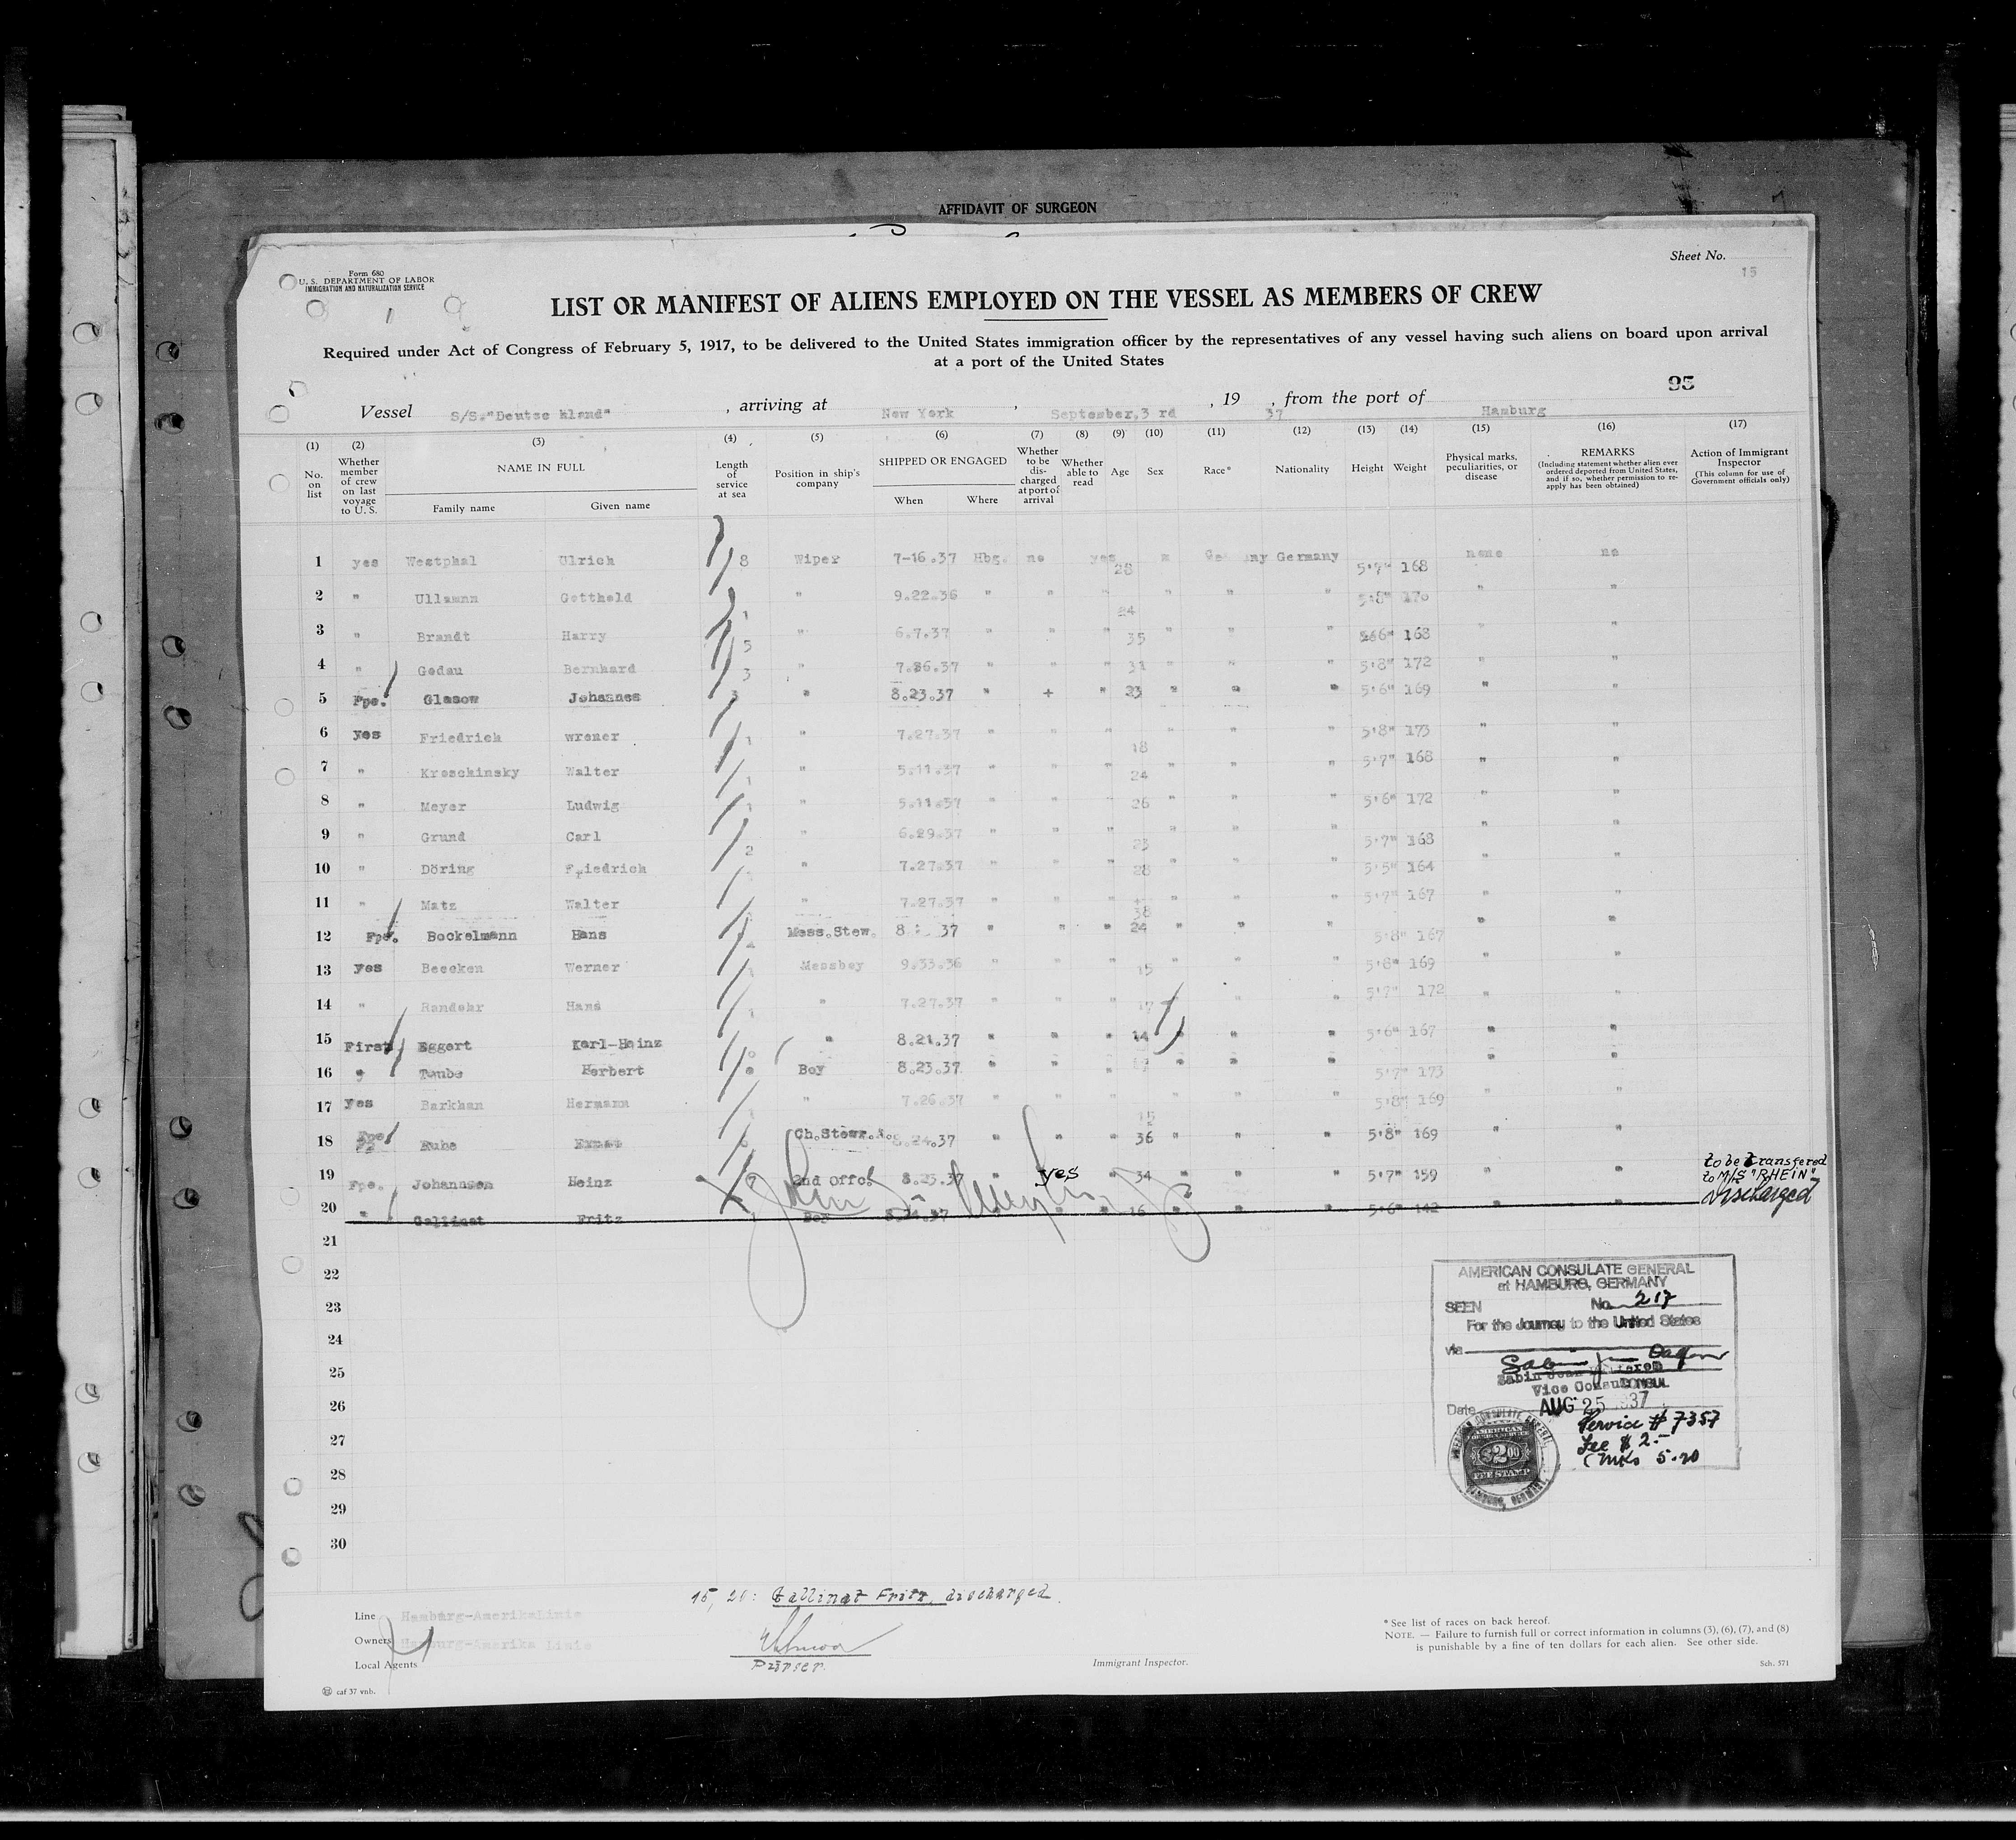 AFFIDAVIT OF SURGEON
Sheet No.
15
Form 680
U. S. DEPARTMENT OF LABOR
IMMIGRATION AND NATURALIZATION SERVICE
LIST OR MANIFEST OF ALIENS EMPLOYED ON THE VESSEL AS MEMBERS OF CREW
Required under Act of Congress of February 5, 1917, to be delivered to the United States immigration officer by the representatives of any vessel having such aliens on board upon arrival
at a port of the United States
95
Vessel S/S."Deutschland" , arriving at New York , September,3 rd , 19 37 , from the port of Hamburg
(1) (2) (3) (4) (5) (6) (7) (8) (9) (10) (11) (12) (13) (14) (15) (16) (17)
No. on list
Whether member of crew on last voyage to U. S.
NAME IN FULL
Family name Given name
Length of service at sea
Position in ship's company
SHIPPED OR ENGAGED
When Where
Whether to be discharged at port of arrival
Whether able to read
Age
Sex
Race*
Nationality
Height
Weight
Physical marks, peculiarities, or disease
REMARKS
(Including statement whether alien ever ordered deported from United States, and if so, whether permission to reapply has been obtained)
Action of Immigrant Inspector
(This column for use of Government officials only)
1 yes Westphal Ulrich 8 Wiper 7-16.37 Hbg. no yes 28 m Germany Germany 5'7" 168 none no
2 " Ullmann Gotthold 1 " 9.22.36 " " " " " " 5'8" 170 " "
3 " Brandt Harry 5 " 6.7.37 " " " 35 " " 168 " "
4 " Godau Bernhard 3 " 7.26.37 " " " 31 " " " 5'8" 172 " "
5 Fpe. Glasow Johannes 3 " 8.23.37 " + " 23 " " " 5'6" 169 " "
6 yes Friedrich wrener 1 " 7.27.37 " " " 18 " " " 5'8" 173 " "
7 " Kroschinsky Walter 1 " 5.11.37 " " " 24 " " " 5'7" 168 " "
8 " Meyer Ludwig 1 " 5.11.37 " " " 26 " " " 5'6" 172 " "
9 " Grund Carl 2 " 6.29.37 " " " 23 " " " 5'7" 168 " "
10 " Döring Friedrich " 7.27.37 " " " 28 " " " 5'5" 164 " "
11 " Matz Walter " 7.27.37 " " " 38 " " " 5'7" 167 " "
12 Fpe. Bockelmann Hans Mess.Stew. 8 37 " " " 24 " " " 5'8" 167 " "
13 yes Beecken Werner 1 Messboy 9.33.36 " " " 15 " " " 5'8" 169 " "
14 " Randohr Hans 1 " 7.27.37 " " " 17 " " 5'7" 172 " "
15 First Eggert Karl-Heinz 0 " 8.21.37 " " " 14 " " " 5'6" 167 " "
16 " Taube Herbert 0 Boy 8.23.37 " " " " " " 5'7" 173 " "
17 yes Barkhan Hermann " 7.26.37 " " " 15 " " " 5'8" 169 " "
18 Fpe. Ernst Ch.Stew. 8.24.37 " " " 36 " " " 5'8" 169 " "
19 Fpe. Johannsen Heinz 7 2nd Offc. 8.23.37 " yes " 34 " " " 5'7" 159 " " to be transfered
to M/S "RHEIN"
20 " Gallinat Fritz 1 Boy 8.24.37 " " " 16 " " " 5'6" 142 " " Discharged
21
22
23
24
25
26
27
28
29
30
AMERICAN CONSULATE GENERAL
at HAMBURG, GERMANY
SEEN No. 217
For the Journey to the United States
via
Vice Consul
Date AUG 25 1937
Service # 7357
Fee $ 2.-
(Mks 5.20
AMERICAN
FOREIGN SERVICE
$2.00
FEE STAMP
15, 20: Gallinat Fritz, discharged.
Line Hamburg-AmerikaLinie
Owners Hamburg-Amerika Linie
Local Agents
Purser.
Immigrant Inspector.
* See list of races on back hereof.
NOTE. — Failure to furnish full or correct information in columns (3), (6), (7), and (8)
is punishable by a fine of ten dollars for each alien. See other side.
Sch. 571
caf 37 vnb.